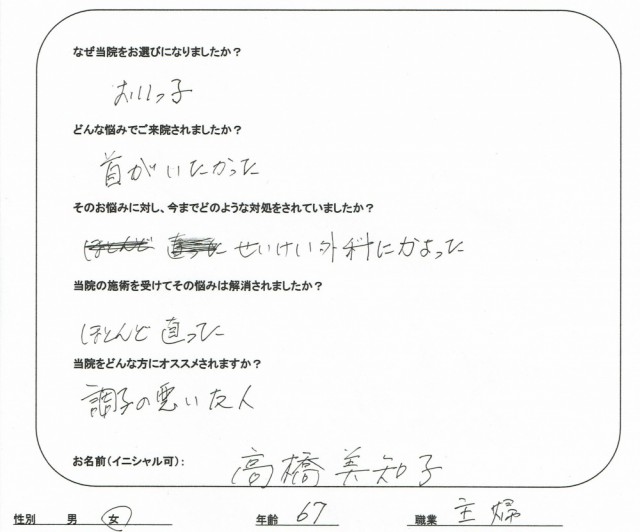 なぜ当院をお選びになりましたか？
おいっ子
どんな悩みでご来院されましたか？
首がいたかった
そのお悩みに対し、今までどのような対処をされていましたか？
ほとんど 直った せいけい外科にかよった
当院の施術を受けてその悩みは解消されましたか？
ほとんど 直った
当院をどんな方にオススメされますか？
調子の悪い友人
お名前（イニシャル可）： 高橋 美知子
性別 男 女 年齢 67 職業 主婦